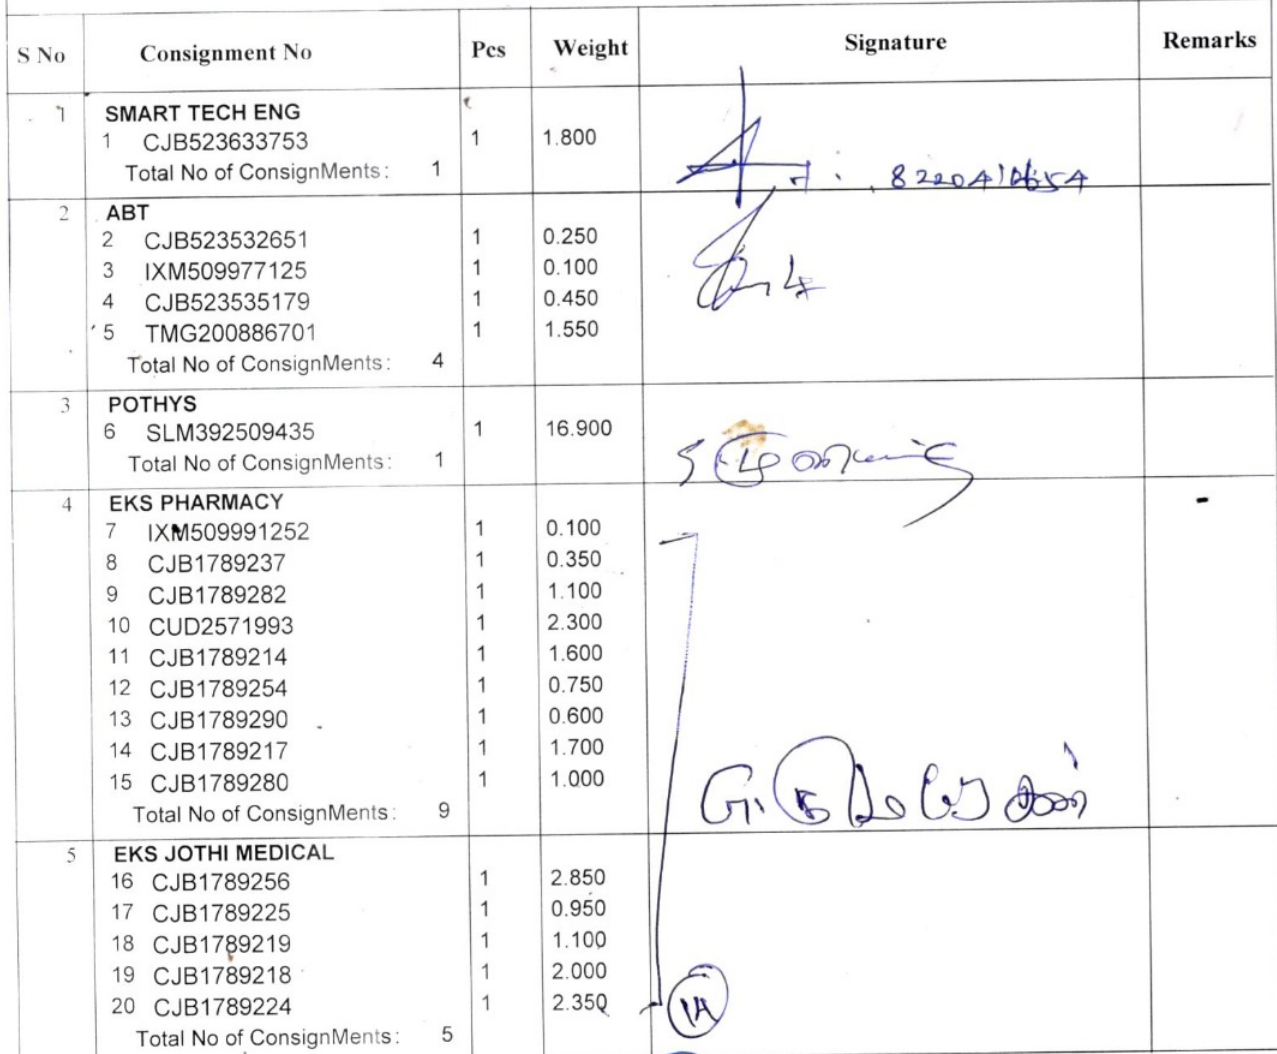 S No Consignment No Pcs Weight Signature Remarks
1 SMART TECH ENG
1 CJB523633753 1 1.800
Total No of ConsignMents: 1
2 ABT
2 CJB523532651 1 0.250
3 IXM509977125 1 0.100
4 CJB523535179 1 0.450
5 TMG200886701 1 1.550
Total No of ConsignMents: 4
3 POTHYS
6 SLM392509435 1 16.900
Total No of ConsignMents: 1
4 EKS PHARMACY
7 IXM509991252 1 0.100
8 CJB1789237 1 0.350
9 CJB1789282 1 1.100
10 CUD2571993 1 2.300
11 CJB1789214 1 1.600
12 CJB1789254 1 0.750
13 CJB1789290 1 0.600
14 CJB1789217 1 1.700
15 CJB1789280 1 1.000
Total No of ConsignMents: 9
5 EKS JOTHI MEDICAL
16 CJB1789256 1 2.850
17 CJB1789225 1 0.950
18 CJB1789219 1 1.100
19 CJB1789218 1 2.000
20 CJB1789224 1 2.350
Total No of ConsignMents: 5